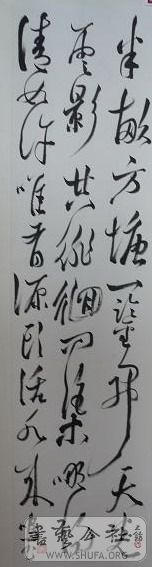 半畝方塘一鑒開天光
雲影共徘徊問渠哪得
清如許唯有源頭活水來
書藝公社
© WWW.SHUFA.ORG